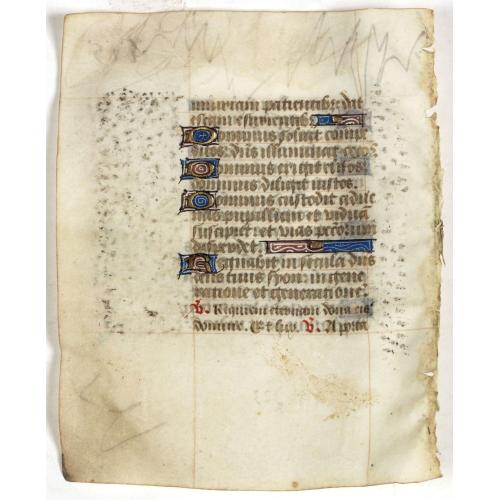 iniuriam patientibus: dat
escam esurientibus
Dominus soluit compe
ditos: dns illuminat cecos
Dominus erigit elisos
dominus diligit iustos.
Dominus custodit adue
nas pupillum et vidua
suscipiet et vias peccatorum
disperdet
Regnabit in secula dns
deus tuus syon: in gene
ratione et generatione:
V. Requiem eternam dona eis
domine. Et lux. V. A porta